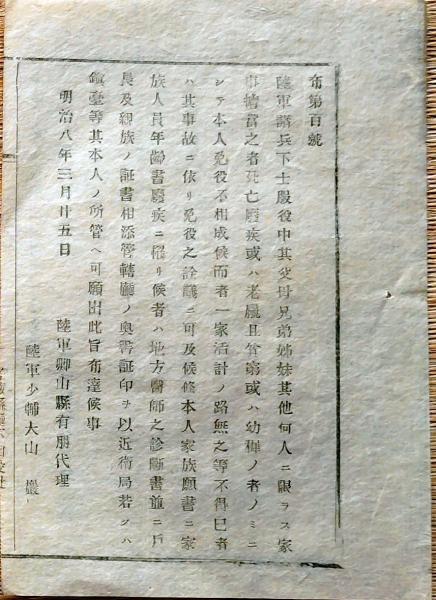 布第百號
陸軍諸兵下士服役中其父母兄弟姉妹其他何人ニ限ラス家
事擔當之者死亡廢疾或ハ老衰且管弟或ハ幼稺ノ者ノミニ
シテ本人免役不相成候而者一家活計ノ路無之等不得已者
ハ其事故ニ依リ免役之詮議ニ可及候條本人家族願書ニ家
族人員年齡書廢疾ニ罹リ候者ハ地方醫師之診斷書並ニ戸
長及親族ノ証書相添管轄廳ノ奥書証印ヲ以近衛局若クハ
鎮臺等其本人ノ所管ヘ可願出此旨布達候事
明治八年三月廿五日
陸軍卿山縣有朋代理
陸軍少輔大山 巖